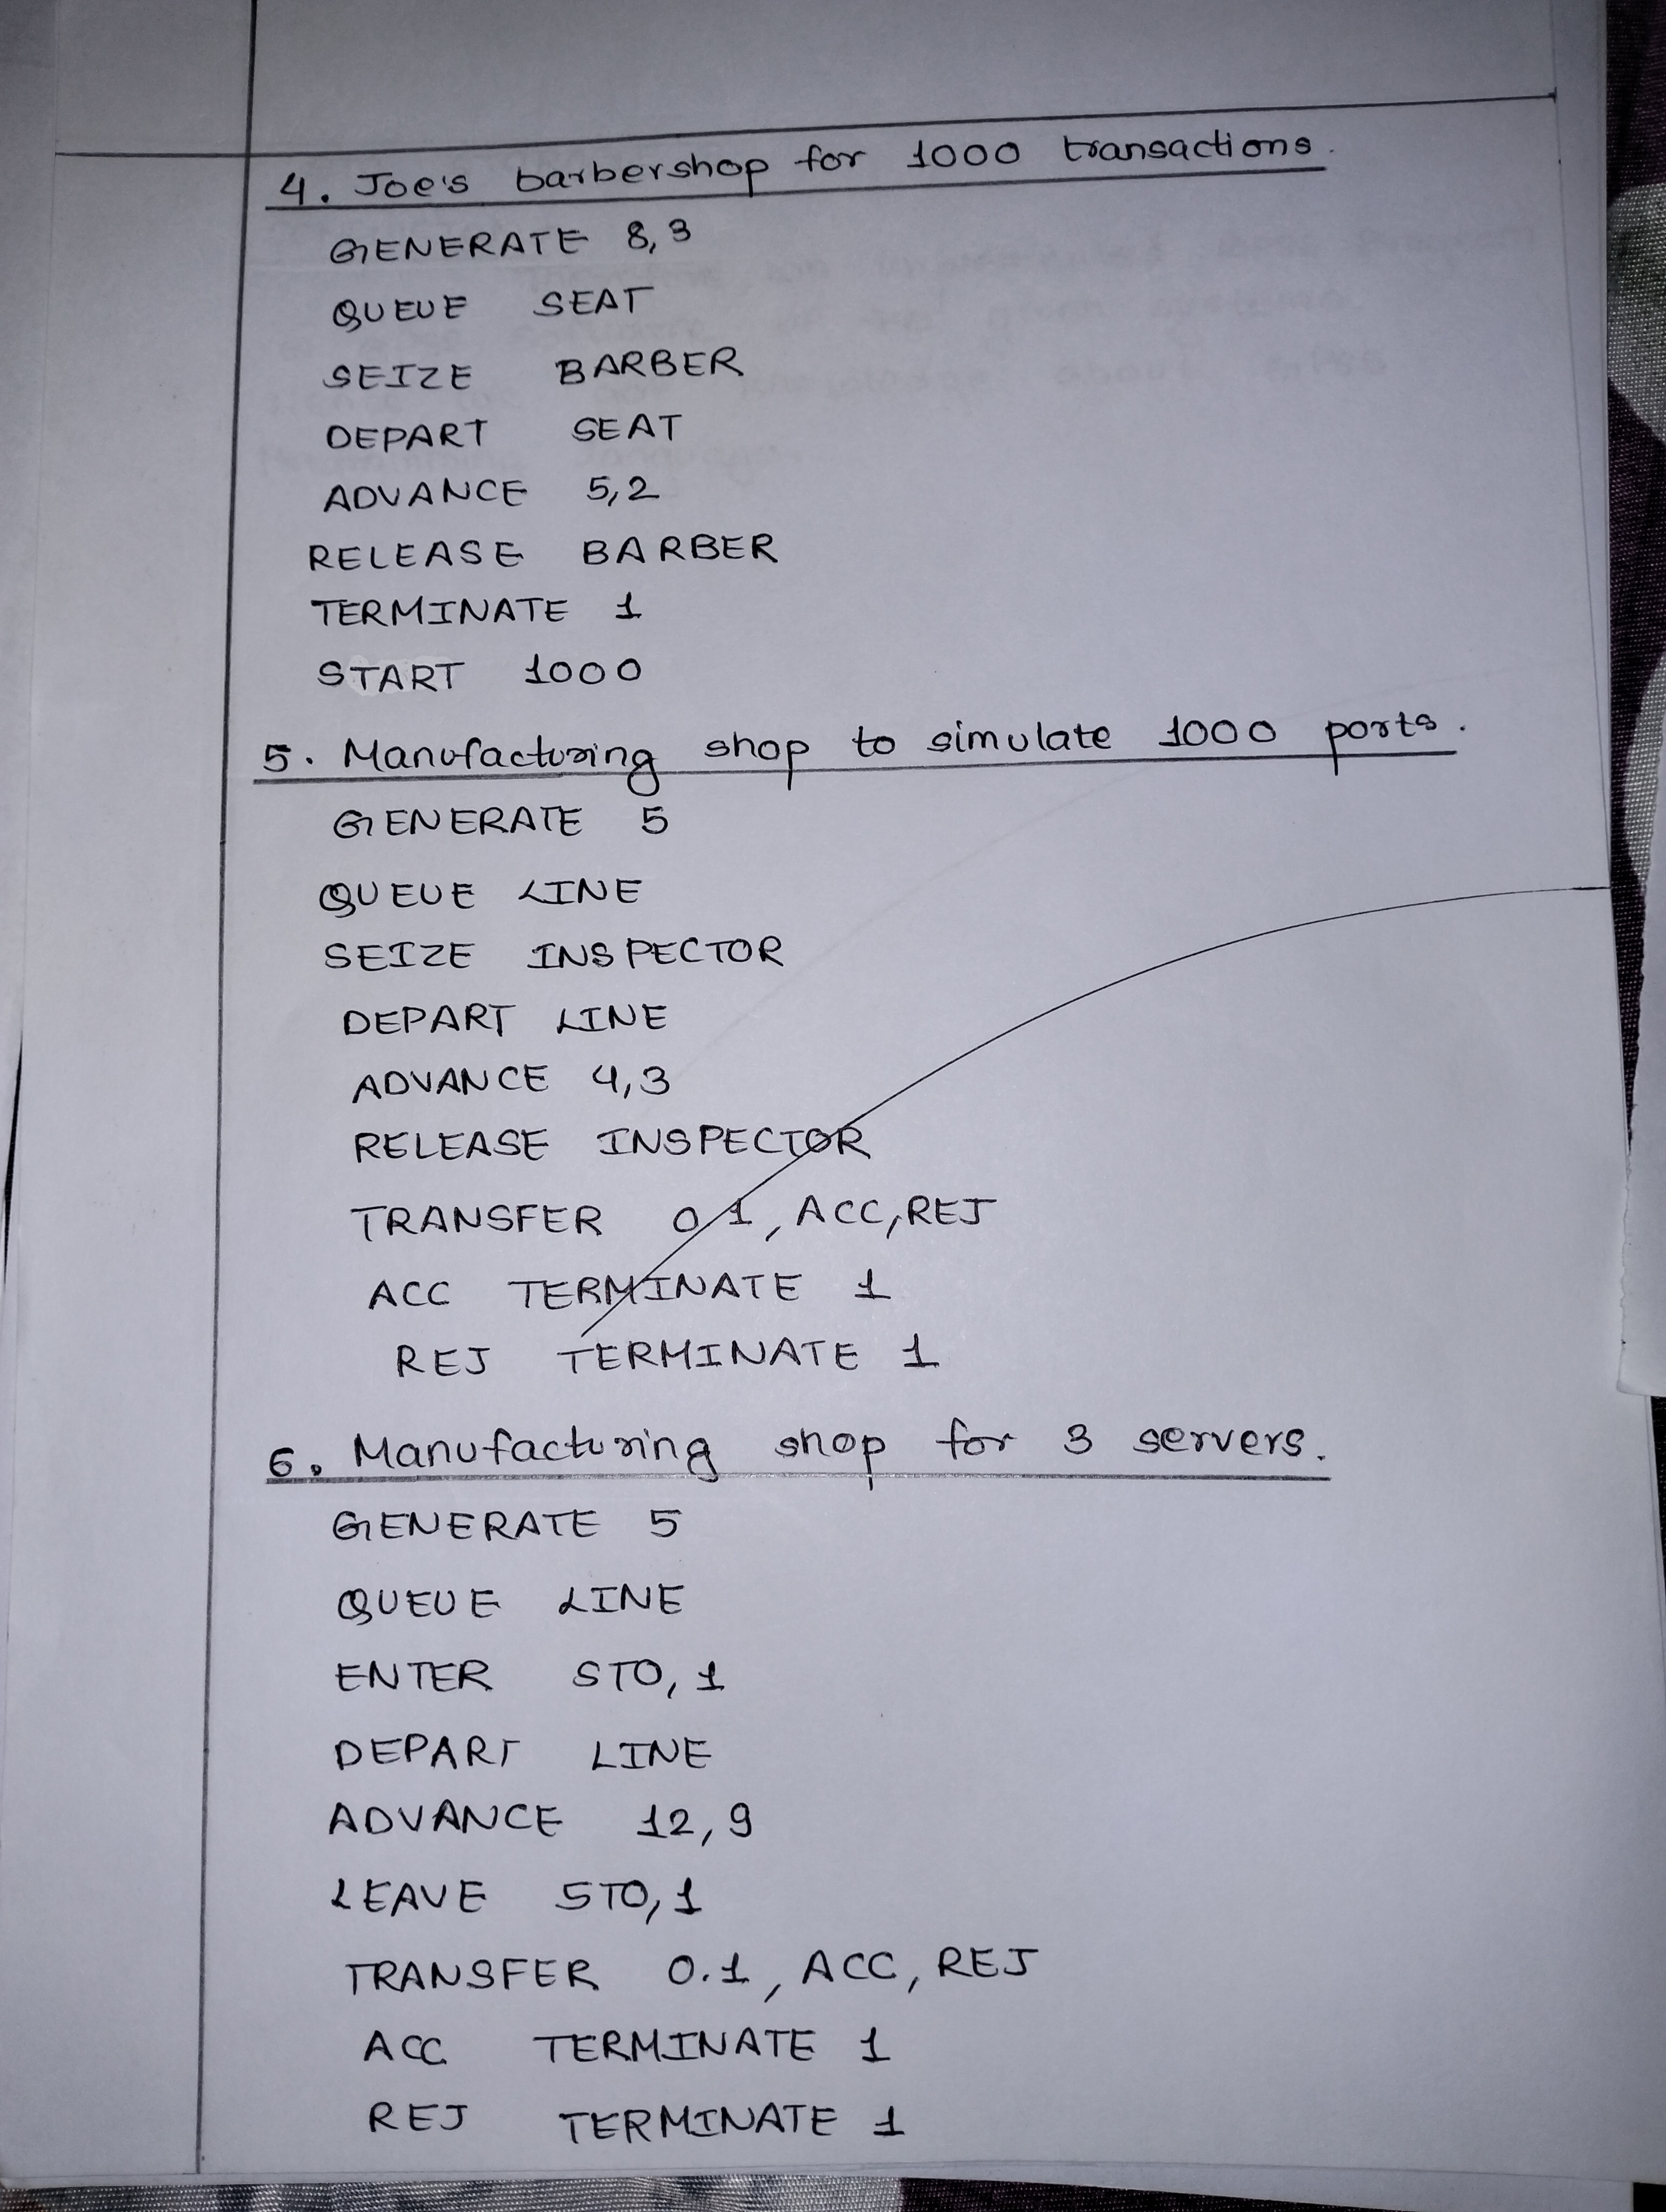 4. Joe's barbershop for 1000 transactions.
GENERATE 8,3
QUEUE SEAT
SEIZE BARBER
DEPART SEAT
ADVANCE 5,2
RELEASE BARBER
TERMINATE 1
START 1000
5. Manufacturing shop to simulate 1000 ports.
GENERATE 5
QUEUE LINE
SEIZE INSPECTOR
DEPART LINE
ADVANCE 4,3
RELEASE INSPECTOR
TRANSFER 0.1, ACC,REJ
ACC TERMINATE 1
REJ TERMINATE 1
6. Manufacturing shop for 3 servers.
GENERATE 5
QUEUE LINE
ENTER STO, 1
DEPART LINE
ADVANCE 12,9
LEAVE STO,1
TRANSFER 0.1, ACC, REJ
ACC TERMINATE 1
REJ TERMINATE 1